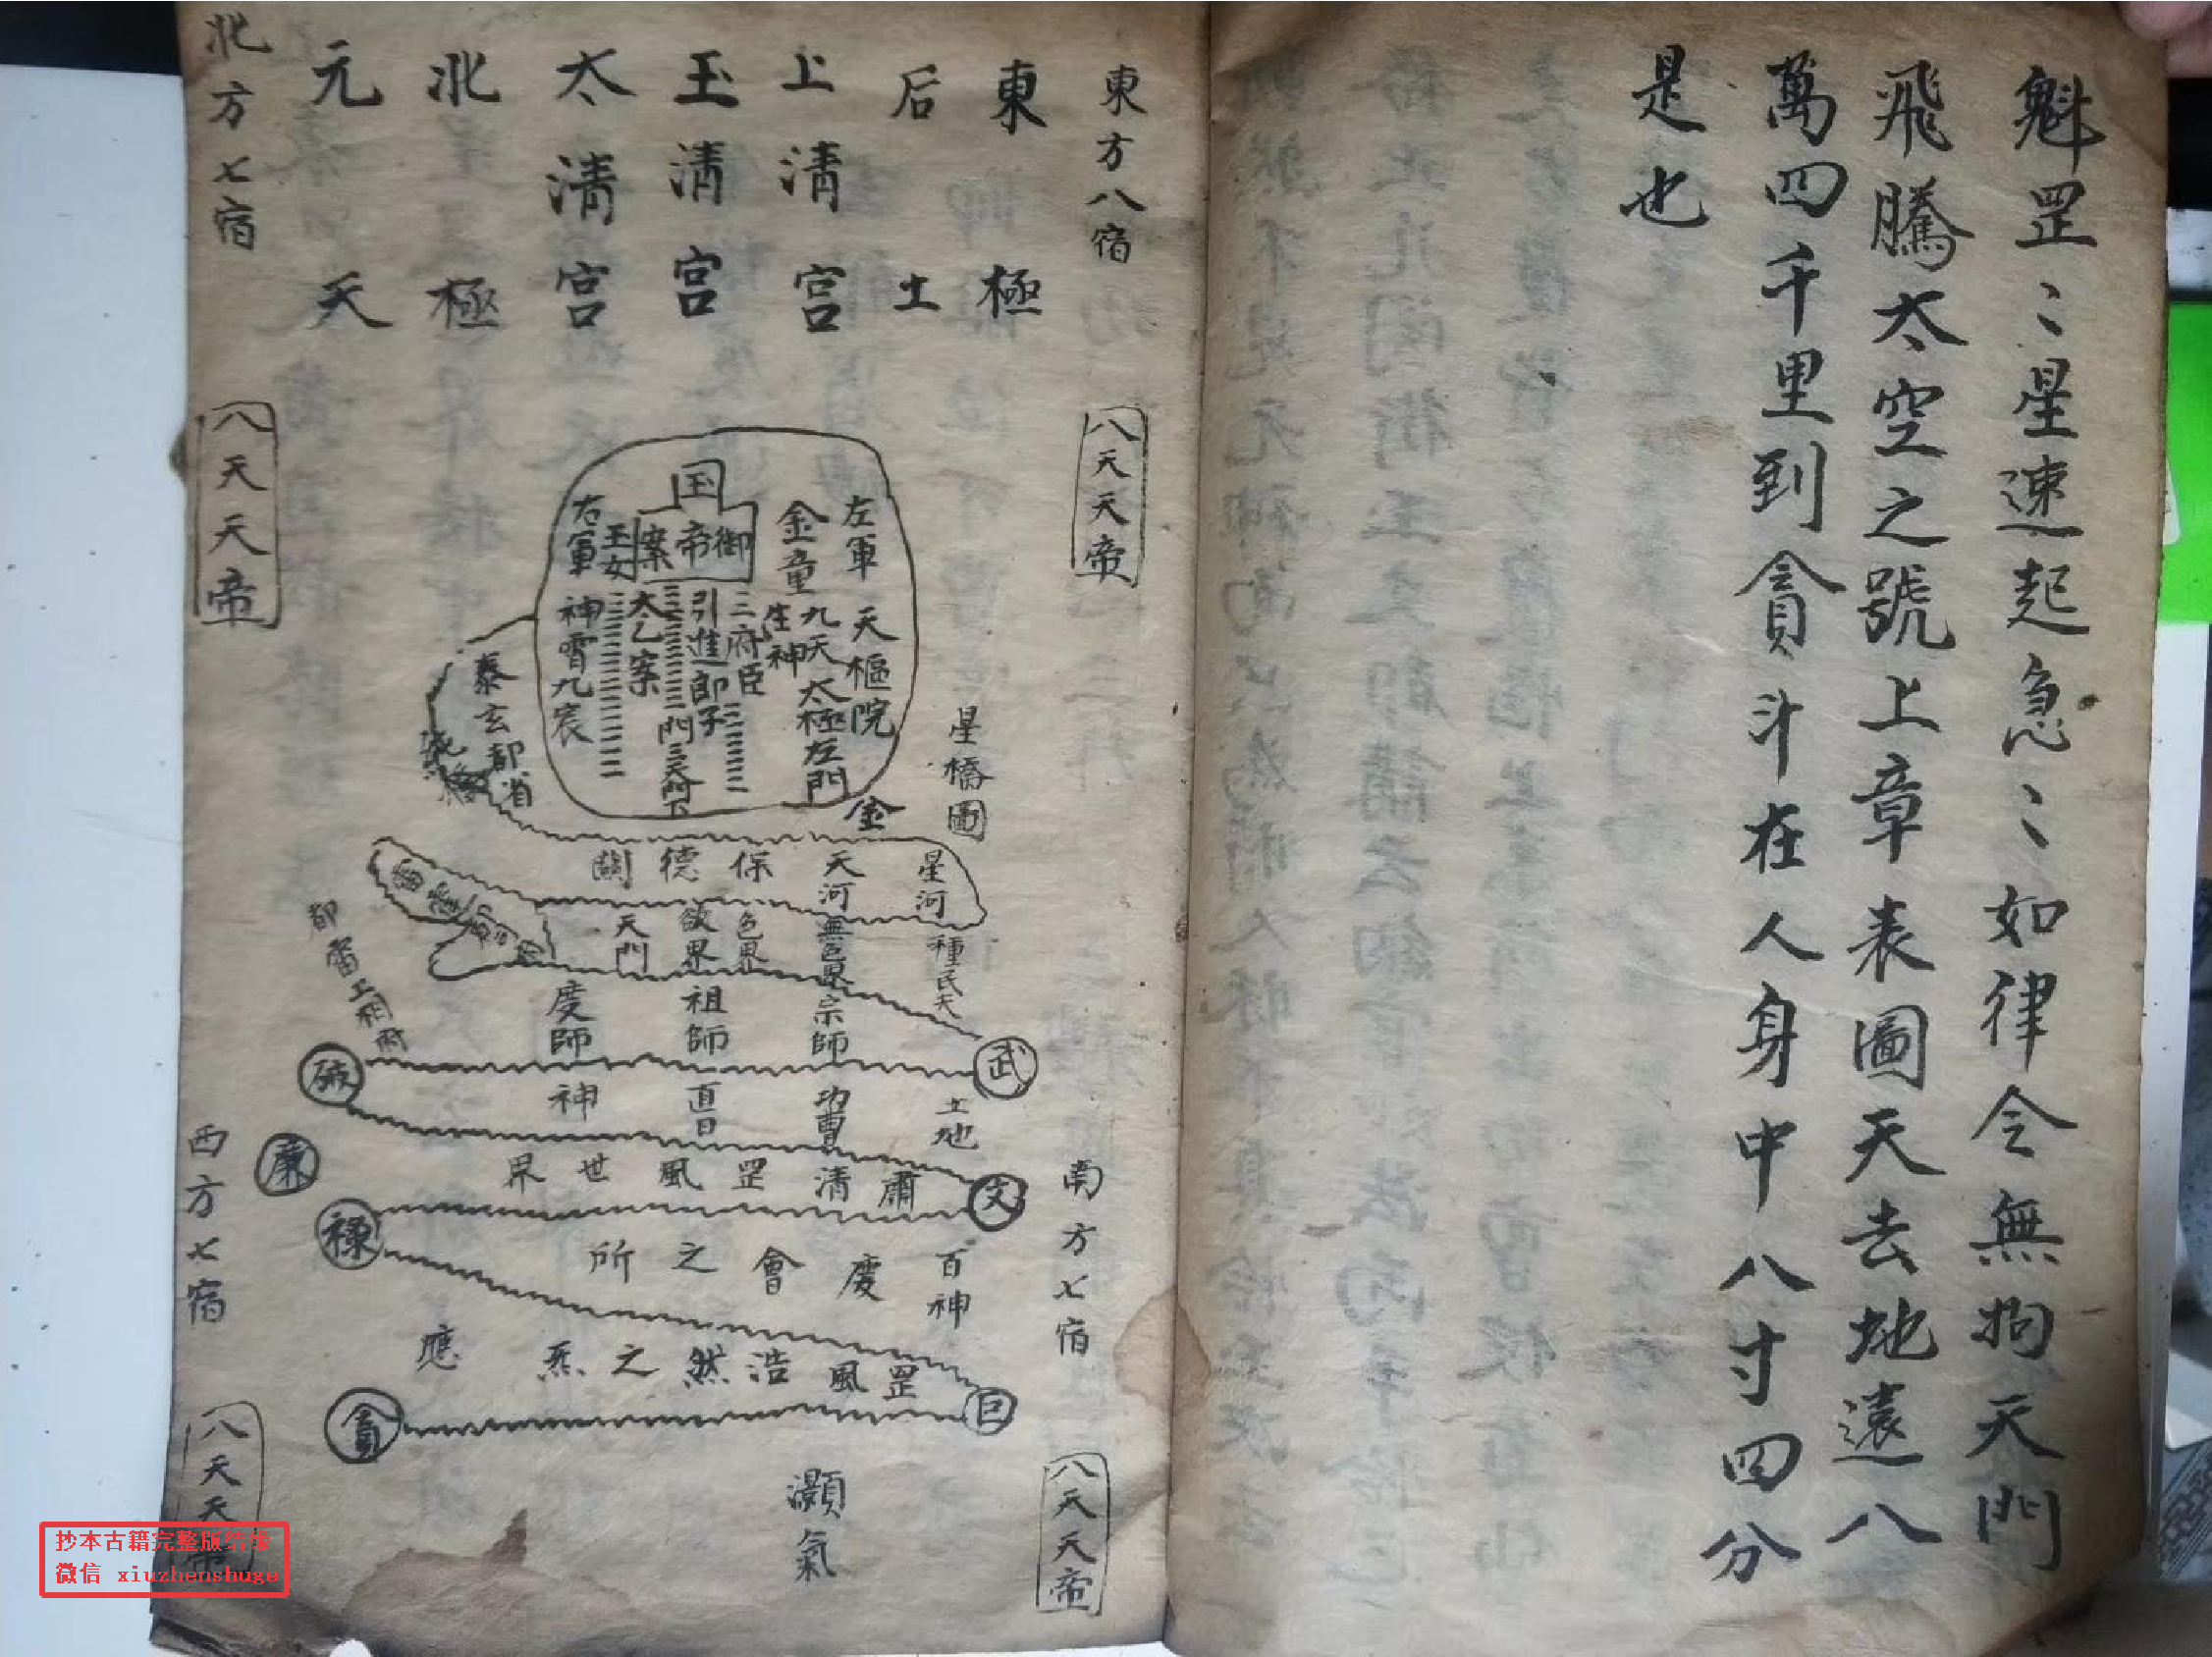 魁罡〻星速起急〻如律令無拘天門
飛騰太空之號上章表圖天去地遠八
萬四千里到貪斗在人身中八寸四分
是也
東方八宿
東極
后土
上清宮
玉清宮
太清宮
北極
元天
北方七宿
八天天帝
八天天帝
左軍
天樞院
金童
九天
生神
太極左門
御帝案
三府臣
引進郎子
門
玉女
太乙案
右軍
神霄九宸
泰玄都省
金
星橋圖
星河
天河
保德關
種民天
無色界
色界
欲界
天門
宗師
祖師
度師
武
破
土地
功曹
直日
神
廉
肅清罡風世界
文
祿
百神慶會之所
罡風浩然之炁
應
巨
貪
灝氣
南方七宿
西方七宿
八天天帝
八天天帝
抄本古籍完整版结缘
微信 xiuzhenshuge